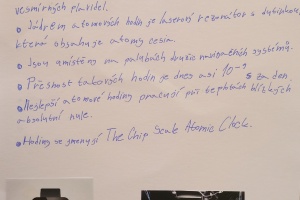 vesmírných plavidel.
• Jádrem atomových hodin je laserový rezonátor s dutinkou,
která obsahuje atomy cesia.
• Jsou umístěny na palubách družic navigačních systémů.
• Přesnost takových hodin je dnes asi 10⁻⁹ s za den.
• Nejlepší atomové hodiny pracují při teplotách blízkých
absolutní nule.
• Hodiny se jmenují The Chip Scale Atomic Clock.